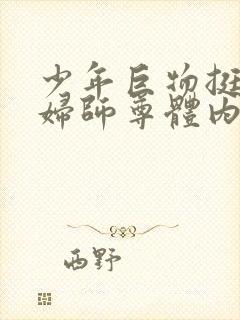 少年巨物挺
婦師尊體內
西野